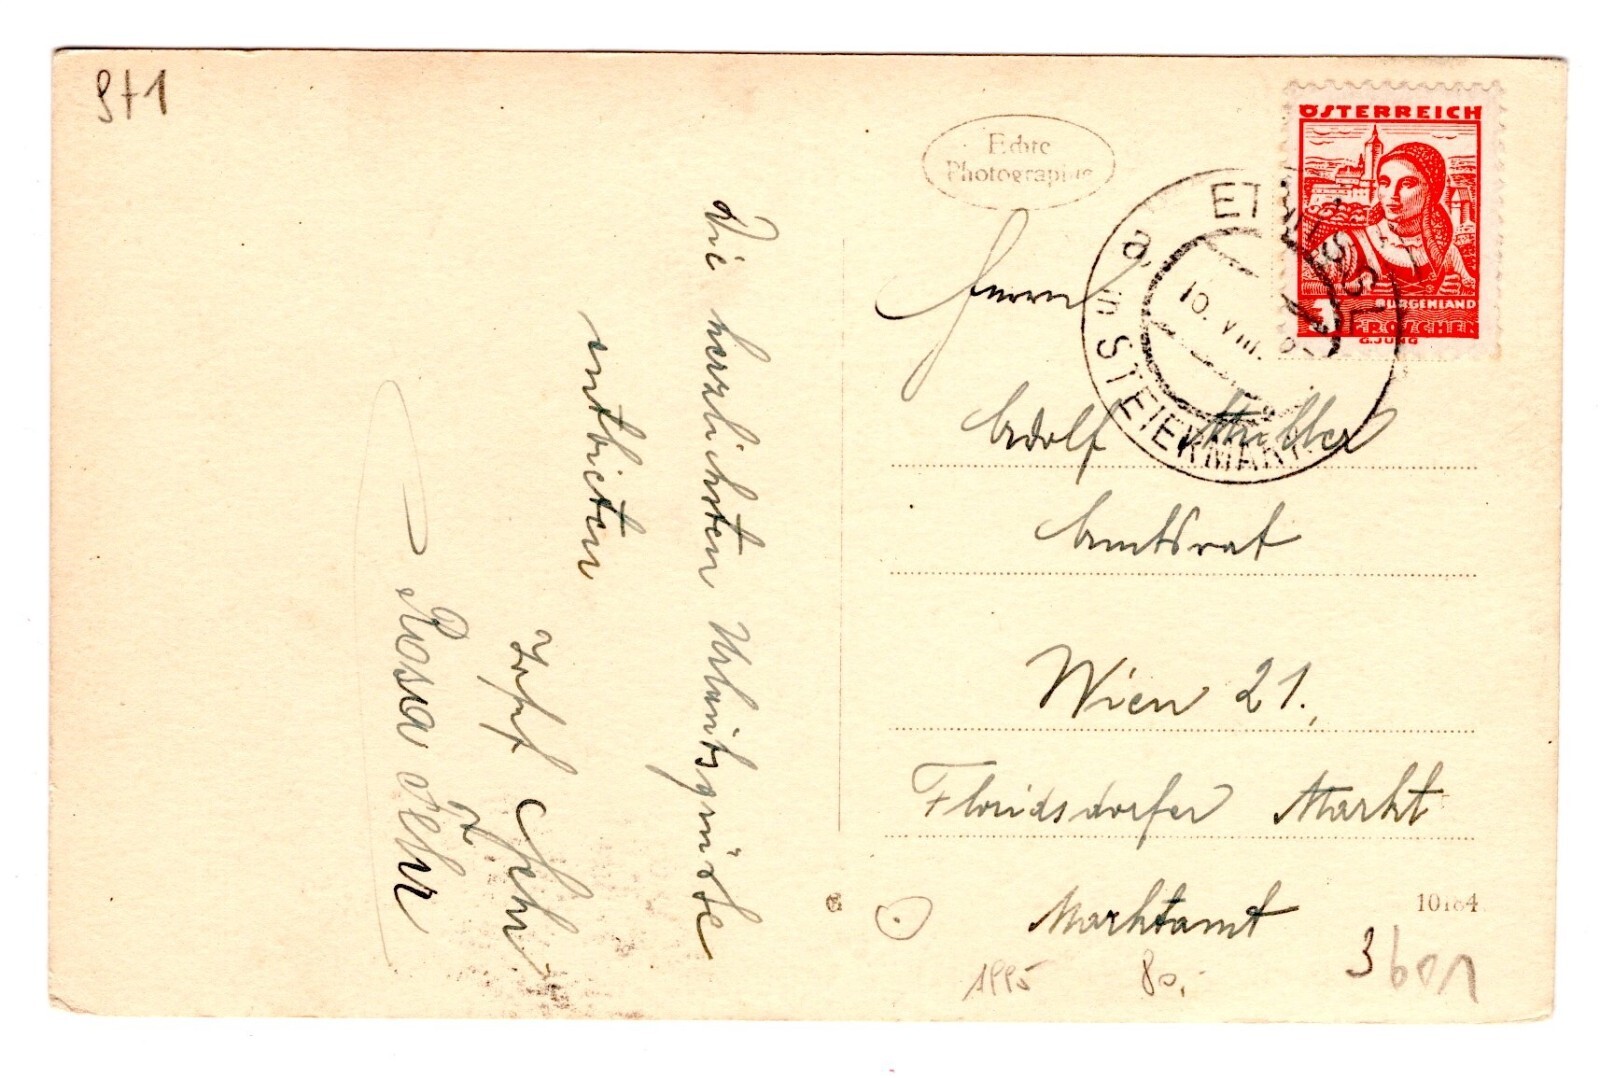 St1
Echte
Photographie
ÖSTERREICH
BURGENLAND
3 GROSCHEN
G.JUNG
10. VIII.
in STEIERMARK
Die herzlichsten Urlaubsgrüße
entbieten
Josef Fehr
Rosa Fehr
Herrn
Adolf Müller
Amtsrat
Wien 21.,
Floridsdorfer Markt
Marktamt
10184
1995
80,-
3601